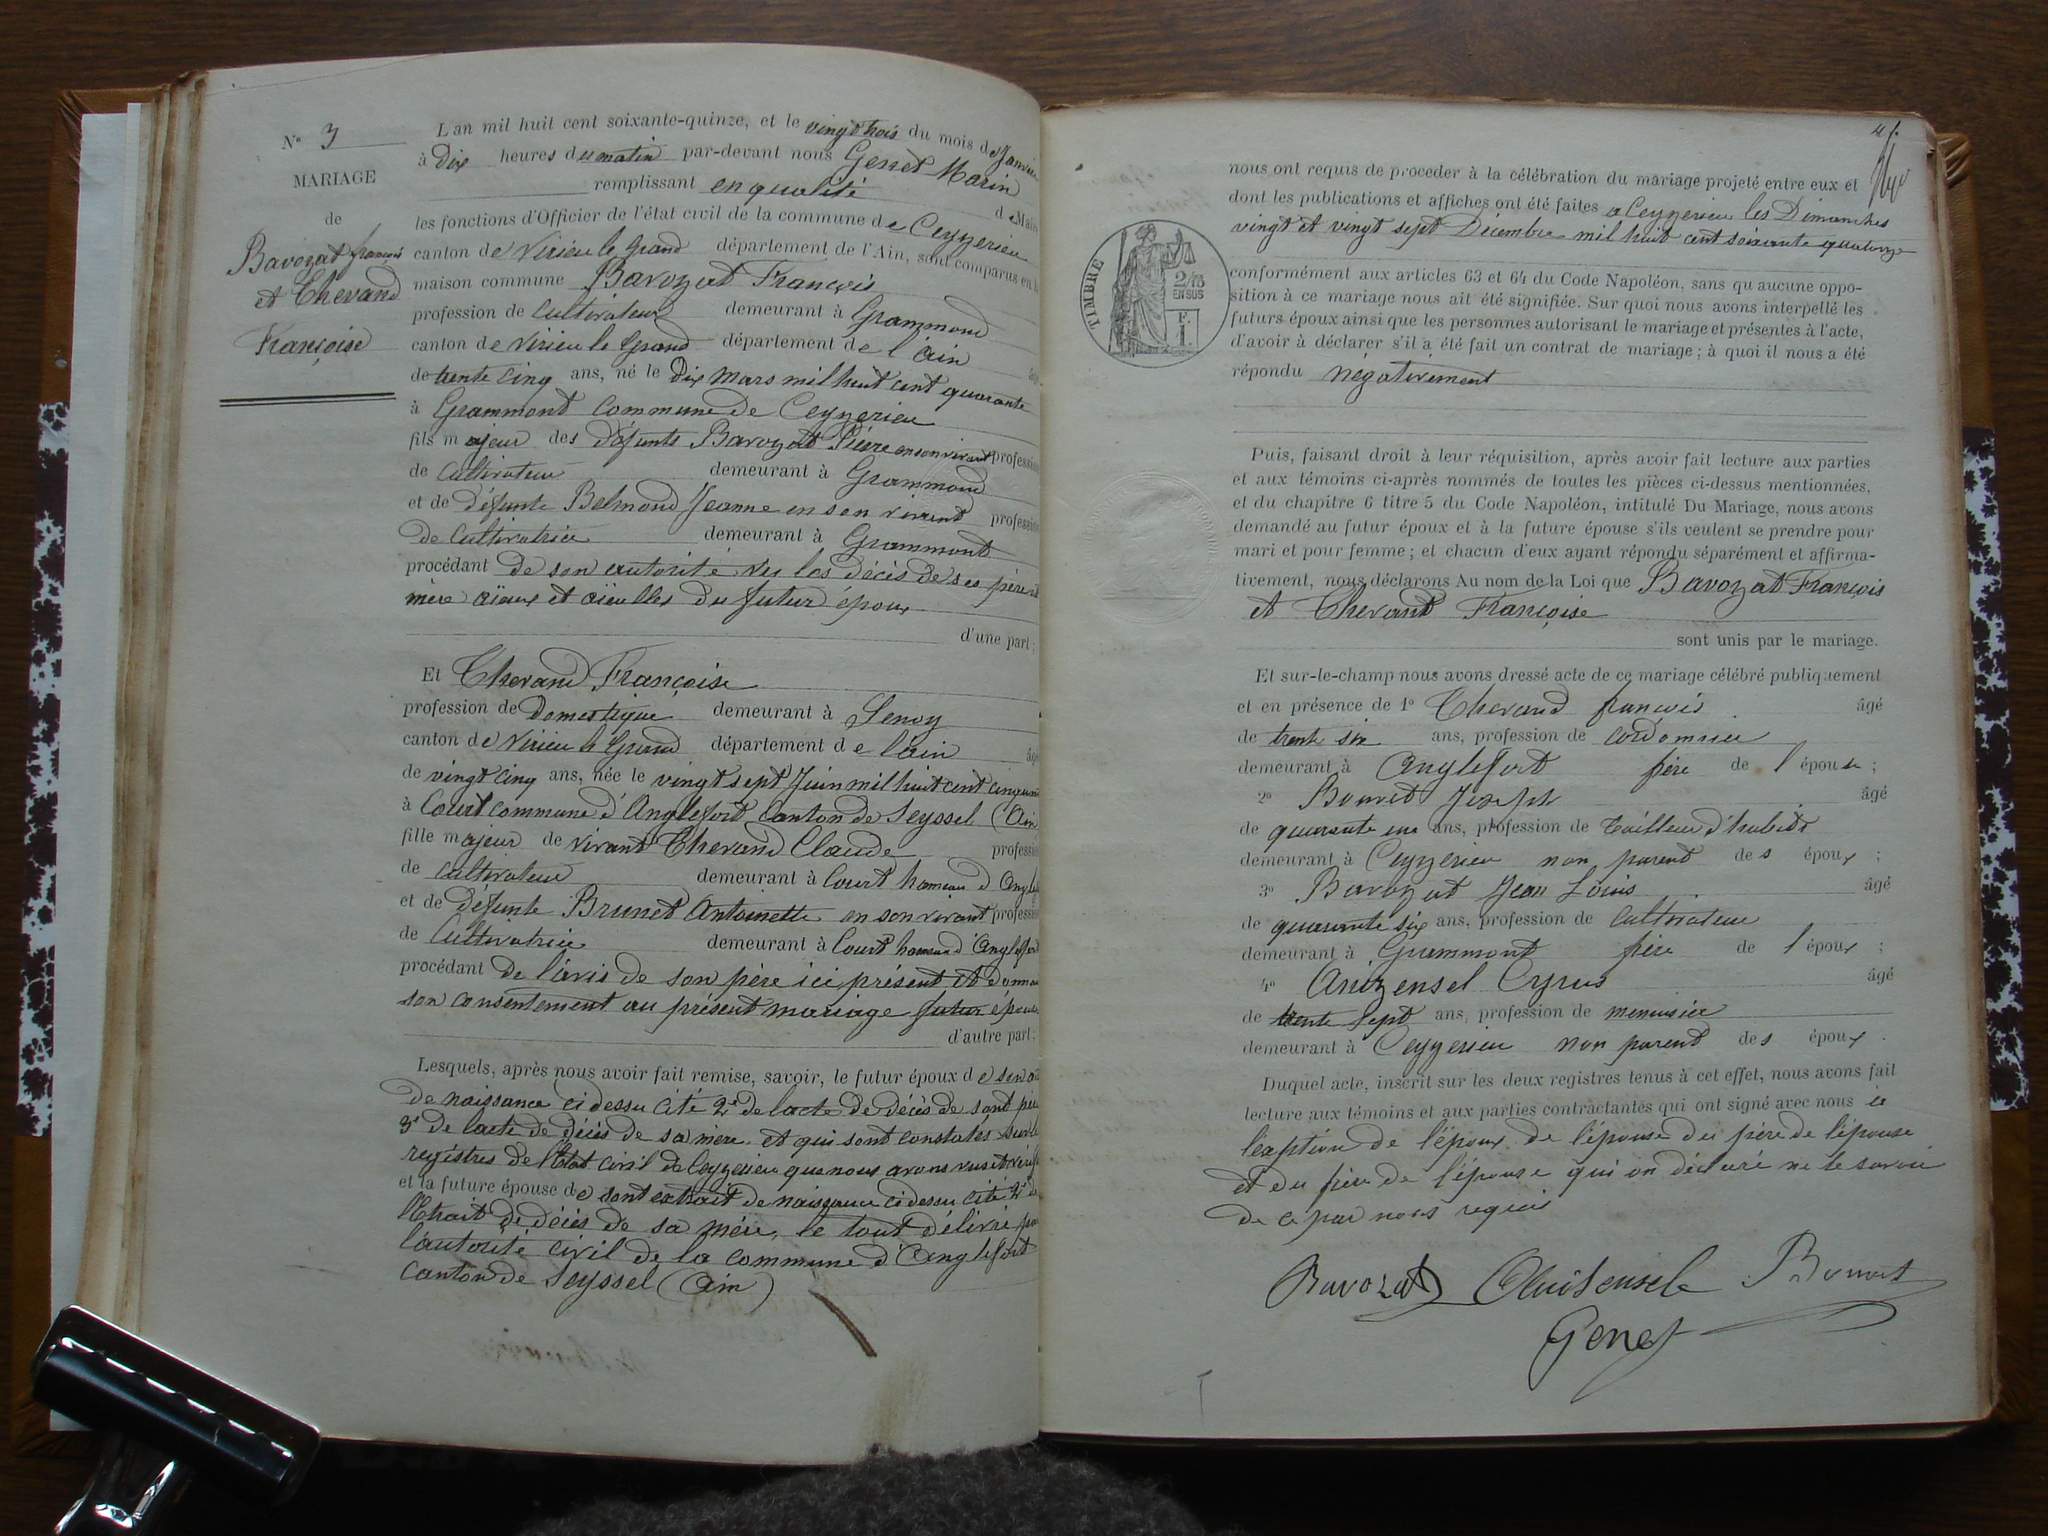 N° 3
MARIAGE
de
Bavozat françois
et Chevand
Françoise
L'an mil huit cent soixante-quinze, et le vingt trois du mois de Janvier
à Dix heures du matin par-devant nous Genet Marin
remplissant en qualité de Maire
les fonctions d'Officier de l'état civil de la commune de Ceyzerieu
canton de Virieu le Grand département de l'Ain, sont comparus en la
maison commune Bavozat François
profession de Cultivateur demeurant à Grammond
canton de Virieu le Grand département de l'ain âgé
de trente cinq ans, né le Dix Mars mil huit cent quarante
à Grammont commune de Ceyzerieu
fils majeur des défunts Bavozat Pierre en son vivant profession
de Cultivateur demeurant à Grammond
et de défunte Belmond Jeanne en son vivant profession
de Cultivatrice demeurant à Grammont
procédant de son autorité vu les décès de ses père et
mère aieux et aieulles du futur époux
d'une part;
Et Chevand Françoise
profession de Domestique demeurant à Senoy
canton de Virieu le Grand département de l'ain âgé
de vingt cinq ans, née le vingt sept Juin mil huit cent cinquante
à Court commune d'Anglefort Canton de Seyssel (Ain
fille majeur de vivant Chevand Claude profession
de Cultivateur demeurant à Court hameau d'Angle
et de défunte Brunet Antoinette en son vivant profession
de Cultivatrice demeurant à Court hameau d'Anglefort
procédant de l'avis de son père ici présent et donnant
son consentement au présent mariage futur épouse
d'autre part:
Lesquels, après nous avoir fait remise, savoir, le futur époux de son acte
de naissance ci dessu cité 2° de lacte de décès de sont père
3° de lacte de décès de sa mère et qui sont constatés sur les
registres de l'Etat civil de Ceyzerieu que nous avons vus et vérifié
et la future épouse de sont extrait de naissance ci dessu cité 2° de
l'Etrait de décès de sa mère, le tout délivré par
l'autorité civil de la commune d'Anglefort
Canton de Seyssel (Ain)
4.
nous ont requis de proceder à la célébration du mariage projeté entre eux et
dont les publications et affiches ont été faites a Ceyzerieu les Dimanches
vingt et vingt sept Décembre mil huit cent soixante quatorze
TIMBRE
2/10
EN SUS
F.
1.
conformément aux articles 63 et 64 du Code Napoléon, sans qu'aucune oppo-
sition à ce mariage nous ait été signifiée. Sur quoi nous avons interpellé les
futurs époux ainsi que les personnes autorisant le mariage et présentes à l'acte,
d'avoir à déclarer s'il a été fait un contrat de mariage; à quoi il nous a été
répondu négativement
Puis, faisant droit à leur réquisition, après avoir fait lecture aux parties
et aux témoins ci-après nommés de toutes les pièces ci-dessus mentionnées,
et du chapitre 6 titre 5 du Code Napoléon, intitulé Du Mariage, nous avons
demandé au futur époux et à la future épouse s'ils veulent se prendre pour
mari et pour femme; et chacun d'eux ayant répondu séparément et affirma-
tivement, nous déclarons Au nom de la Loi que Bavozat François
et Chevant Françoise
sont unis par le mariage.
Et sur-le-champ nous avons dressé acte de ce mariage célébré publiquement
et en présence de 1° Chevand françois âgé
de trente six ans, profession de cordonnier
demeurant à Anglefort frère de l'épouse;
2° Bonnet Joseph âgé
de quarante un ans, profession de Tailleur d'habits
demeurant à Ceyzerieu non parent des époux;
3° Bavozat Jean Louis âgé
de quarante six ans, profession de Cultivateur
demeurant à Grammont frère de l'époux;
4° Anizensel Cyrus âgé
de trente sept ans, profession de menuisier
demeurant à Ceyzerieu non parent des époux.
Duquel acte, inscrit sur les deux registres tenus à cet effet, nous avons fait
lecture aux témoins et aux parties contractantes qui ont signé avec nous à
lexption de l'époux, de l'épouse du père de l'épouse
et du frère de l'épouse qui on déclaré ne le savoir
de ce par nous requis
Bavozat Bonnet
Genet